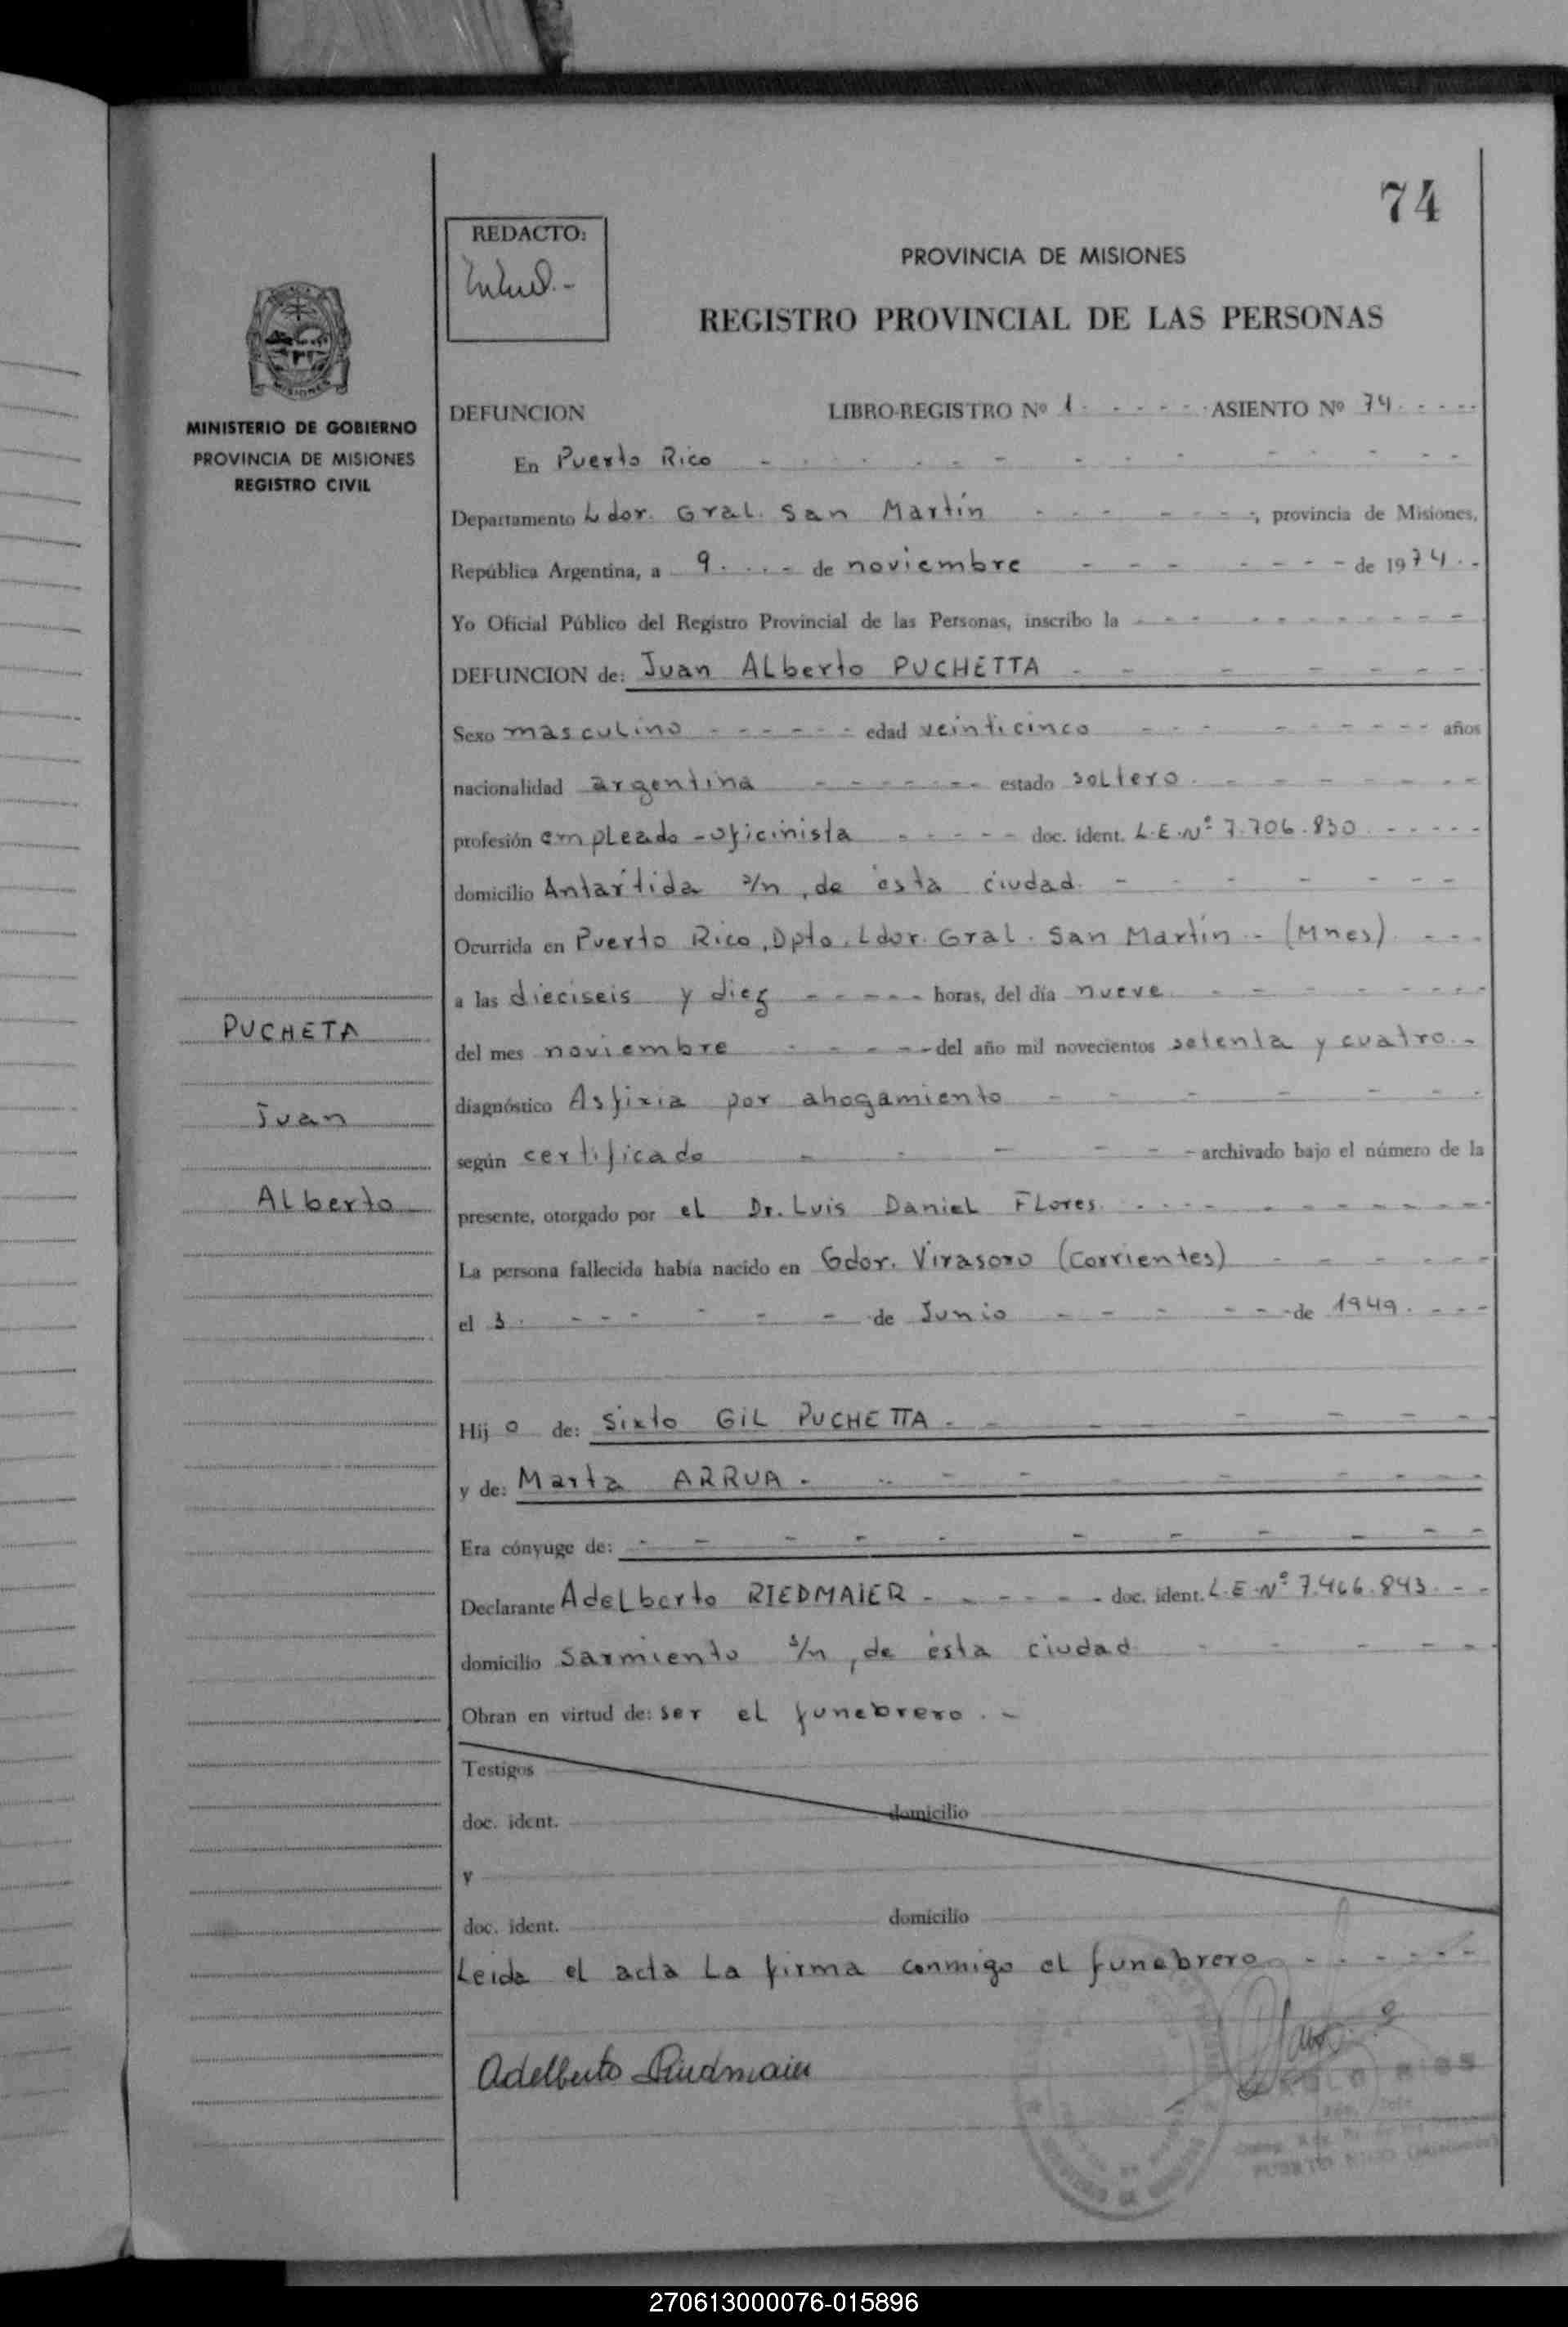 74
REDACTO:
PROVINCIA DE MISIONES
REGISTRO PROVINCIAL DE LAS PERSONAS
MISIONES
MINISTERIO DE GOBIERNO
PROVINCIA DE MISIONES
REGISTRO CIVIL
DEFUNCION LIBRO-REGISTRO Nº 1 - - - - - ASIENTO Nº 74 - - - - -
En Puerto Rico - - - - - - - - - - -
Departamento Ldor. Gral. San Martín - - - - - - -, provincia de Misiones,
República Argentina, a 9 . . . - de noviembre - - - - - - - de 1974 . -
Yo Oficial Público del Registro Provincial de las Personas, inscribo la - - - - - - - - - - -
DEFUNCION de: Juan Alberto PUCHETTA - - - - - - -
Sexo masculino - - - - - - edad veinticinco - - - - - - - - - años
nacionalidad argentina - - - - - - - estado soltero - - - - - - -
profesión empleado - oficinista - - - - - doc. ident. L.E.Nº 7.706.830 - - - - -
domicilio Antártida s/n, de ésta ciudad - - - - - - -
Ocurrida en Puerto Rico, Dpto. Ldor. Gral. San Martín - (Mnes) - - -
a las dieciseis y diez - - - - - horas, del día nueve - - - - - - - -
del mes noviembre - - - - - del año mil novecientos setenta y cuatro . -
diagnóstico Asfixia por ahogamiento - - - - - -
según certificado - - - - - - archivado bajo el número de la
presente, otorgado por el Dr. Luis Daniel Flores - - - - - - - - - - -
La persona fallecida había nacido en Gdor. Virasoro (Corrientes) - - - - - -
el 3 . - - - - - - de Junio - - - - - - - de 1949 . - - -
Hijo de: Sixto GIL PUCHETTA . - - - - - - -
y de: Marta ARRUA - - - - - - - - -
Era cónyuge de: - - - - - - - - - - -
Declarante Adelberto RIEDMAIER - - - - - - doc. ident. L.E.Nº 7.466.843 - - -
domicilio Sarmiento s/n, de ésta ciudad - - - - -
Obran en virtud de: ser el funebrero . -
Testigos
doc. ident. domicilio
y
doc. ident. domicilio
Leida el acta la firma conmigo el funebrero - - - - - -
Adelberto Riedmaier
PUERTO RICO (Misiones)
PUCHETA
Juan
Alberto
270613000076-015896